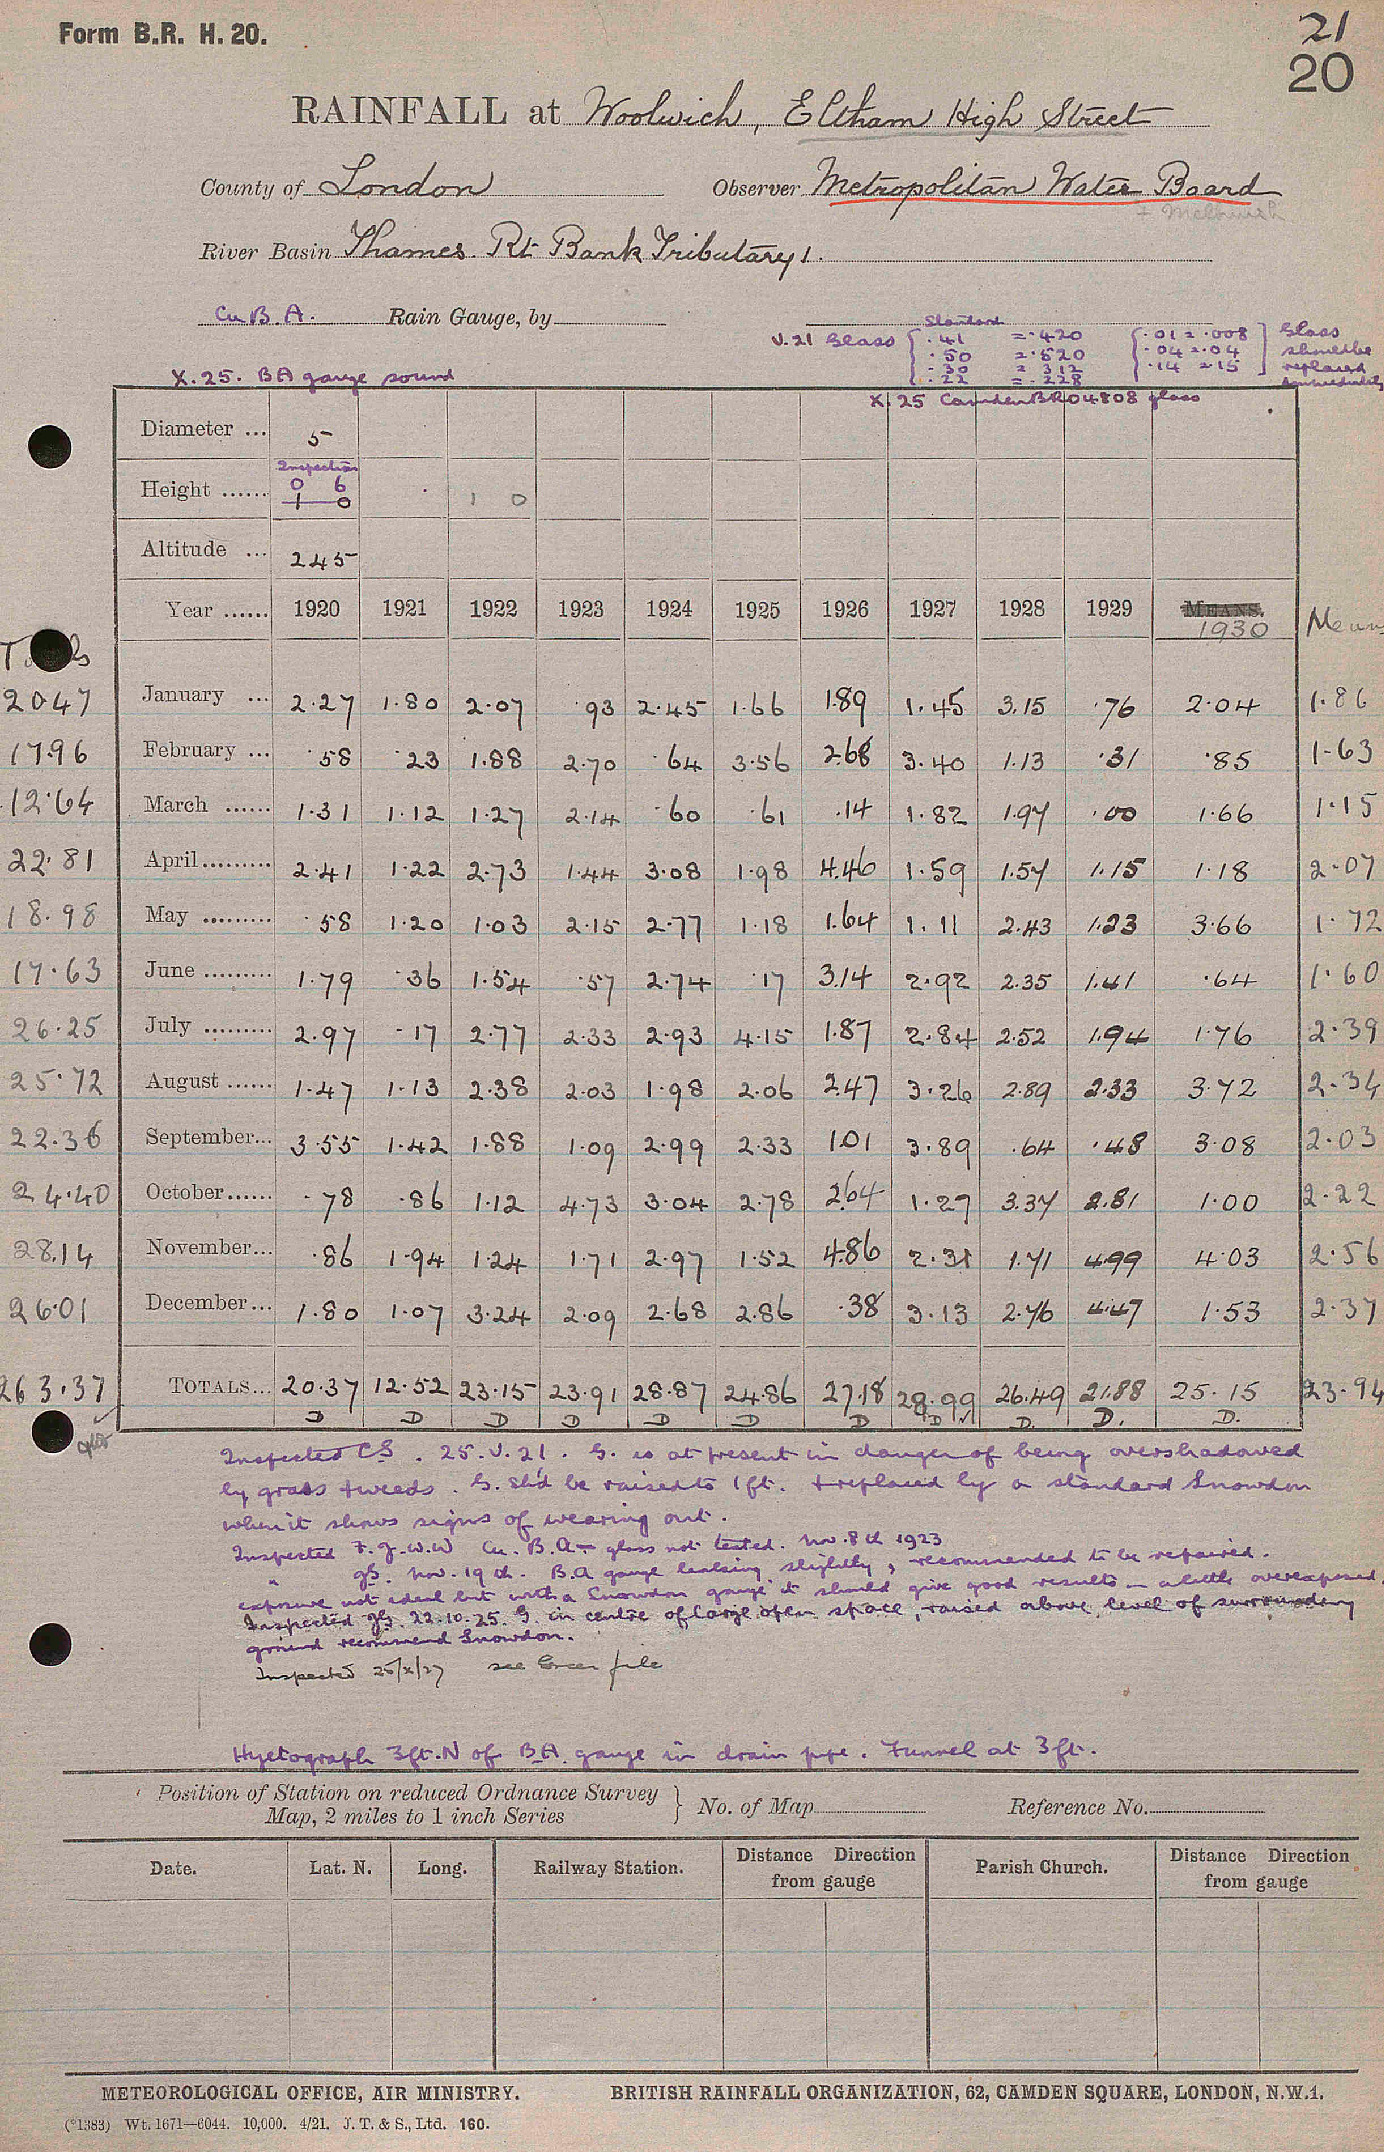 Form B.R. H. 20.
21
20
RAINFALL at Woolwich, Eltham High Street
County of London Observer Metropolitan Water Board
River Basin Thames Rt Bank Tributary 1.
Cu B.A. Rain Gauge, by
V.21 Glass Standard
.41 = .420 .01 = .008 Glass
.50 = .520 .04 = .04 should be
.30 = .312 .14 = .15 replaced
.22 = .228 immediately
X.25. BA gauge sound
X.25 Camden BR04808 glass
Diameter ... 5
Inspection
Height ...... 0 6
1 0 1 0
Altitude ... 245
Year ...... 1920 1921 1922 1923 1924 1925 1926 1927 1928 1929 MEANS. 1930 Means
20.47 January ... 2.27 1.80 2.07 .93 2.45 1.66 1.89 1.45 3.15 .76 2.04 1.86
17.96 February ... .58 .23 1.88 2.70 .64 3.56 2.68 3.40 1.13 .31 .85 1.63
12.64 March ...... 1.31 1.12 1.27 2.14 .60 .61 .14 1.82 1.97 .00 1.66 1.15
22.81 April......... 2.41 1.22 2.73 1.44 3.08 1.98 4.46 1.59 1.57 1.15 1.18 2.07
18.98 May ......... .58 1.20 1.03 2.15 2.77 1.18 1.64 1.11 2.43 1.23 3.66 1.72
17.63 June ......... 1.79 .36 1.54 .57 2.74 .17 3.14 2.92 2.35 1.41 .64 1.60
26.25 July ......... 2.97 .17 2.77 2.33 2.93 4.15 1.87 2.84 2.52 1.94 1.76 2.39
25.72 August ...... 1.47 1.13 2.38 2.03 1.98 2.06 2.47 3.26 2.89 2.33 3.72 2.34
22.36 September... 3.55 1.42 1.88 1.09 2.99 2.33 1.01 3.89 .64 .48 3.08 2.03
24.40 October...... .78 .86 1.12 4.73 3.04 2.78 2.64 1.27 3.37 2.81 1.00 2.22
28.14 November... .86 1.94 1.24 1.71 2.97 1.52 4.86 2.31 1.71 4.99 4.03 2.56
26.01 December... 1.80 1.07 3.24 2.09 2.68 2.86 .38 3.13 2.76 4.47 1.53 2.37
263.37 TOTALS... 20.37 12.52 23.15 23.91 28.87 24.86 27.18 28.99 26.49 21.88 25.15 23.94
D D D D D D D D D. D. D.
Inspected CS. 25.V.21. G. is at present in danger of being overshadowed
by grass + weeds. G. sh'd be raised to 1 ft. + replaced by a standard Snowdon
when it shows signs of wearing out.
Inspected F.J.W.W Cu. B.A. glass not tested. Nov. 8th 1923
" Nov. 19th. B.A gauge leaking slightly, recommended to be repaired.
exposure not ideal but with a Snowdon gauge it should give good results - a little overexposed.
Inspected 22.10.25. G. in centre of large open space, raised above level of surrounding
ground recommend Snowdon.
Inspected 25/x/27 see Green file
Hyetograph 3ft. N of BA. gauge in drain pipe. Funnel at 3ft.
Position of Station on reduced Ordnance Survey
Map, 2 miles to 1 inch Series No. of Map Reference No.
Date. Lat. N. Long. Railway Station. Distance Direction from gauge Parish Church. Distance Direction from gauge
METEOROLOGICAL OFFICE, AIR MINISTRY. BRITISH RAINFALL ORGANIZATION, 62, CAMDEN SQUARE, LONDON, N.W.1.
(*1383) Wt. 1671—6044. 10,000. 4/21. J. T. & S., Ltd. 160.